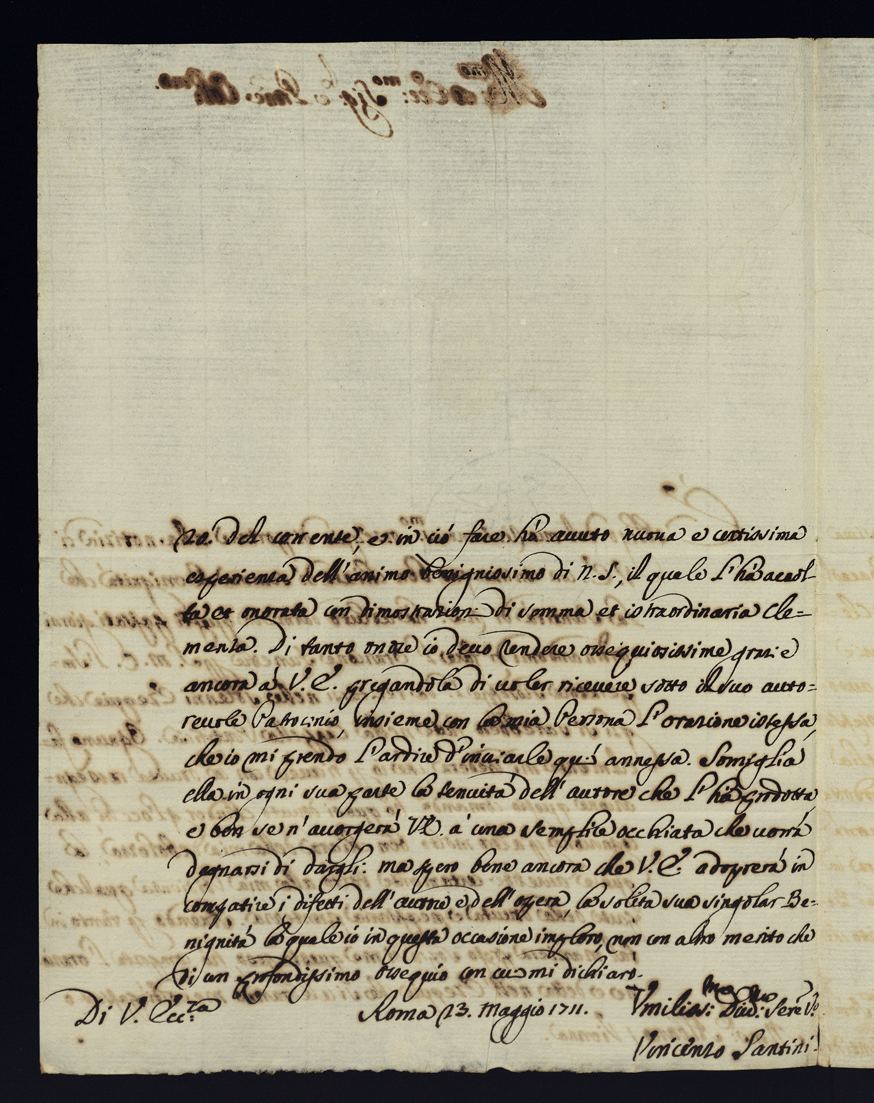 20. del corrente, e in ciò fare hà auuto nuoua e certissima
esperienza dell'animo benignissimo di N. S., il quale l'hà accol-
ta et onorata con dimostrazion di somma et istraordinaria Cle=
menza. Di tanto onore io deuo rendere ossequiosissime grazie
ancora à V. E. pregandola di uoler riceuere sotto il suo auto=
reuole Patrocinio, insieme con la mia Persona l'orazione istessa,
che io mi prendo l'ardire d'inuiarle quì annessa. Somiglia
ella in ogni sua parte la tenuità dell'autore che l'hà prodotta,
e ben se n'auorgerà VE. à una semplice occhiata che uorrà
degnarsi di dargli: ma spero bene ancora che V. E. adoprerà in
compatire i difetti dell'autore e dell'opera, la solita sua singolar Be=
nignità la quale io in questa occasione imploro, non con altro merito che
di un profondissimo ossequio con cui mi dichiaro.
Di V. Ecc:za Roma 23. Maggio 1711. Vmilis:mo Diu:mo Sere V:o
Vincenzo Santini.